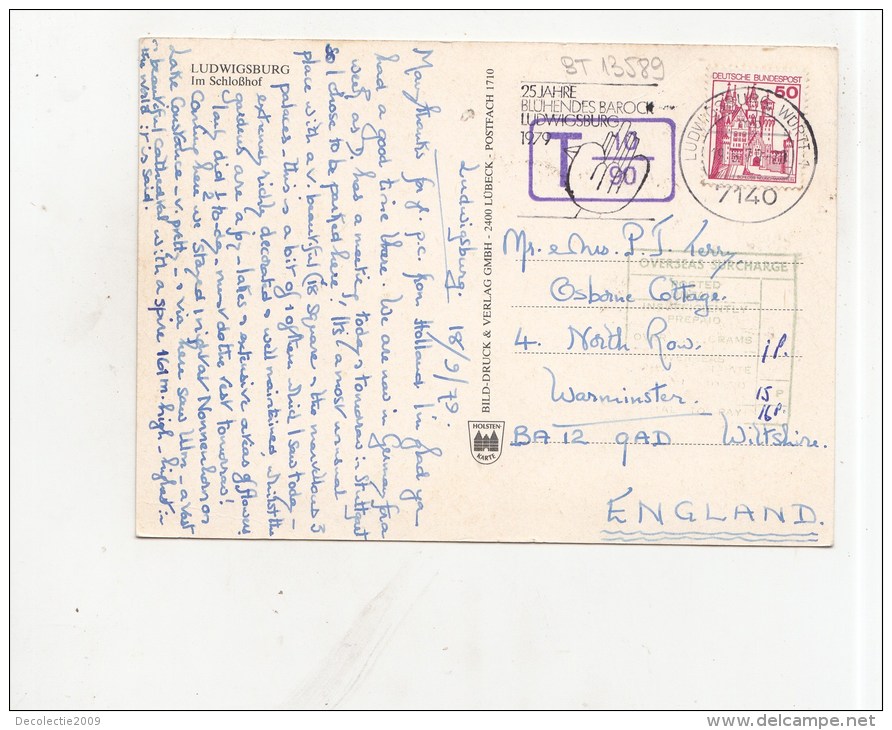 LUDWIGSBURG
Im Schloßhof
Ludwigsburg. 18/9/79.
Many thanks for yr. p.c. from Holland. I'm glad ya
had a good time there. We are now in Germany for a
week as D. has a meeting today & tomorrow in Stuttgart
so I chose to be parked here! It's a most unusual
place with a v. beautiful (18 Square & the marvellous 3
palaces. This is a bit of 1 of them which I saw today –
extremely richly decorated & well maintained, whilst the
gardens are a joy – lakes & extensive areas of flowers
I only did 1 to-day – must do the rest tomorrow!
Coming here we stayed 1 night at Nonnenhorn on
Lake Constance – v. pretty – & via here saw Ulm – a vast
& beautiful cathedral with a spire 161 m. high – highest in
the world it is said.
BILD-DRUCK & VERLAG GMBH - 2400 LÜBECK - POSTFACH 1710
HOLSTEN
KARTE
BT 13589
25 JAHRE
BLÜHENDES BAROCK
LUDWIGSBURG
1979
T 10
90
DEUTSCHE BUNDESPOST
50
7140
Mr. & Mrs. P.J. Terry
Osborne Cottage.
4. North Row.
Warminster.
BA12 9AD Wiltshire.
ENGLAND.
OVERSEAS SURCHARGE
POSTED
PREPAID
1P.
15
P
16P.
Decolectie2009
www.delcampe.net